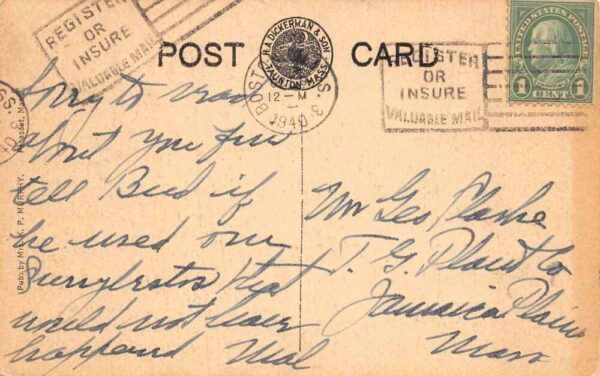 REGISTER
OR
INSURE
VALUABLE MAIL
POST CARD
H.A. DICKERMAN & SON
TAUNTON, MASS.
BOST
12 - M
1940
REGISTER
OR
INSURE
VALUABLE MAIL
UNITED STATES POSTAGE
1 CENT 1
Pub. by Mrs. K. P. MURPHY,
Sorry to read
about you fire
tell Bud if
he used our
that
would not have
happend Mal
Mr Geo
T. G. Plant Co
Jamaica Plain
Mass